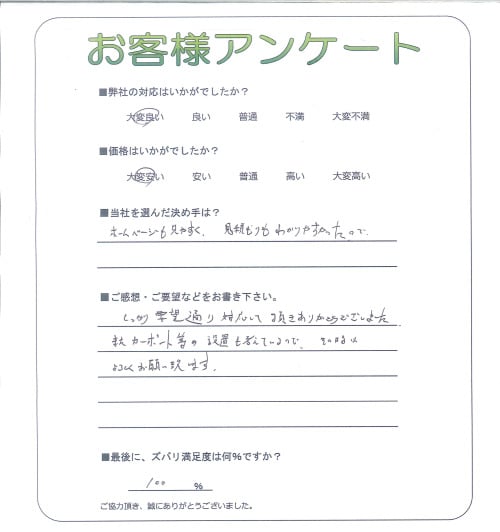 お客様アンケート
■弊社の対応はいかがでしたか？
大変良い 良い 普通 不満 大変不満
■価格はいかがでしたか？
大変安い 安い 普通 高い 大変高い
■当社を選んだ決め手は？
ホームページも見やすく、見積もりもわかりやすかったので
■ご感想・ご要望などをお書き下さい。
しっかり要望通り対応して頂きありがとうございました
またカーポート等の設置も考えているので、その時は
よろしくお願い致します。
■最後に、ズバリ満足度は何％ですか？
100 ％
ご協力頂き、誠にありがとうございました。